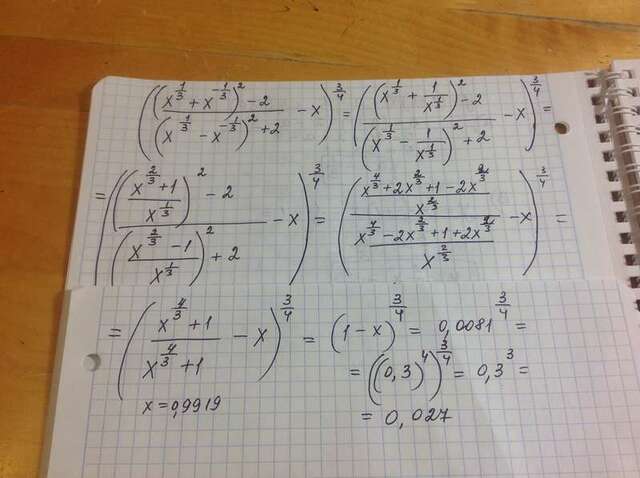 (((x^(1/3) + x^(-1/3))^2 - 2)/((x^(1/3) - x^(-1/3))^2 + 2) - x)^(3/4) = (((x^(1/3) + 1/x^(1/3))^2 - 2)/((x^(1/3) - 1/x^(1/3))^2 + 2) - x)^(3/4) =
= ((((x^(2/3) + 1)/x^(1/3))^2 - 2)/(((x^(2/3) - 1)/x^(1/3))^2 + 2) - x)^(3/4) = (((x^(4/3) + 2x^(2/3) + 1 - 2x^(2/3))/x^(2/3))/((x^(4/3) - 2x^(2/3) + 1 + 2x^(2/3))/x^(2/3)) - x)^(3/4) =
= ((x^(4/3) + 1)/(x^(4/3) + 1) - x)^(3/4) = (1 - x)^(3/4) = 0,0081^(3/4) =
= ((0,3)^4)^(3/4) = 0,3^3 =
x = 0,9919
= 0,027